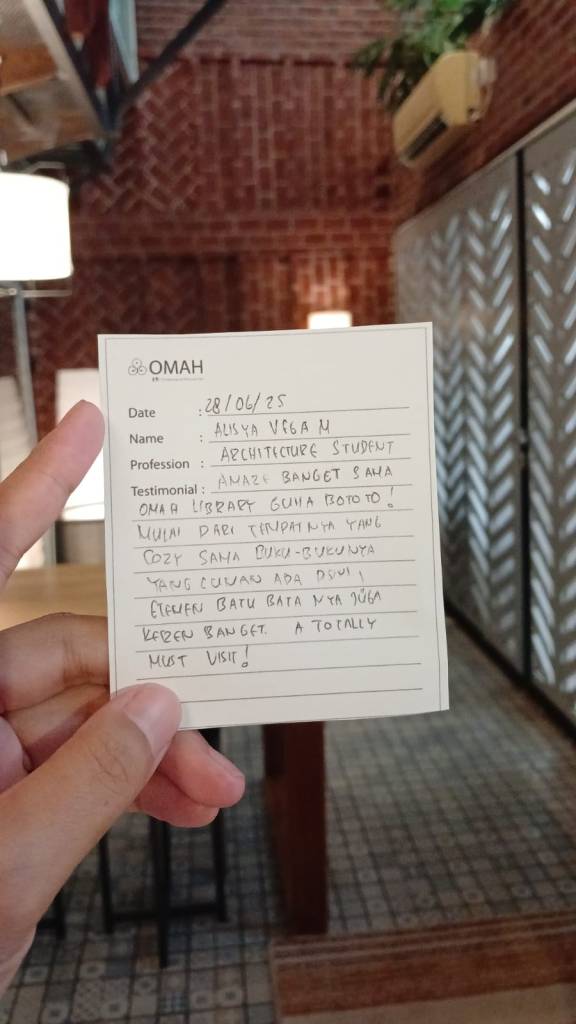 OMAH
Date : 28/06/25
Name : ALISYA VEGA M
Profession : ARCHITECTURE STUDENT
Testimonial : AMAZE BANGET SAMA
OMAH LIBRARY GUHA BOTOTO!
MULAI DARI TEMPATNYA YANG
COZY SAMA BUKU-BUKUNYA
YANG CUMAN ADA DSINI,
ELEMEN BATU BATA NYA JUGA
KEREN BANGET. A TOTALLY
MUST VISIT!